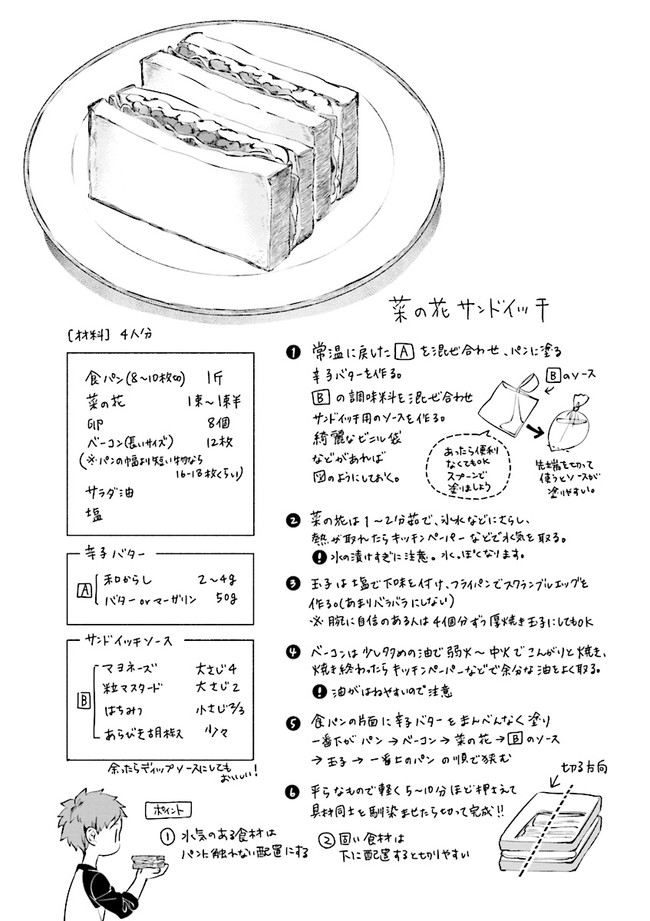 菜の花サンドイッチ
[材料] 4人分
食パン(8〜10枚切) 1斤
菜の花 1束〜1束半
卵 8個
ベーコン(長いサイズ) 12枚
(※パンの幅より短い物なら
16〜18枚くらい)
サラダ油
塩
辛子バター
A
和からし 2〜4g
バターorマーガリン 50g
サンドイッチソース
B
マヨネーズ 大さじ4
粒マスタード 大さじ2
はちみつ 小さじ2/3
あらびき胡椒 少々
余ったらディップソースにしても
おいしい!
❶ 常温に戻した A を混ぜ合わせ、パンに塗る
辛子バターを作る。
B の調味料を混ぜ合わせ
サンドイッチ用のソースを作る。
綺麗なビニル袋
などがあれば
図のようにしておく。
あったら便利
なくてもOK
スプーンで
塗りましょう
Bのソース
先端を切って
使うとソースが
塗りやすい。
❷ 菜の花は1〜2分茹で、氷水などにさらし、
熱が取れたらキッチンペーパーなどで水気を取る。
! 水の漬けすぎに注意。水っぽくなります。
❸ 玉子は塩で下味を付け、フライパンでスクランブルエッグを
作る。(あまりバラバラにしない)
※ 腕に自信のある人は4個分ずつ厚焼き玉子にしてもOK
❹ ベーコンは少し多めの油で弱火〜中火でこんがりと焼き、
焼き終わったらキッチンペーパーなどで余分な油をよく取る。
! 油がはねやすいので注意
❺ 食パンの片面に辛子バターをまんべんなく塗り
一番下がパン→ベーコン→菜の花→Bのソース
→玉子→一番上のパンの順で挟む
❻ 平らなもので軽く5〜10分ほど押さえて
具材同士を馴染ませたら切って完成!!
切る方向
ポイント
① 水気のある食材は
パンに触れない配置にする
② 固い食材は
下に配置すると切りやすい